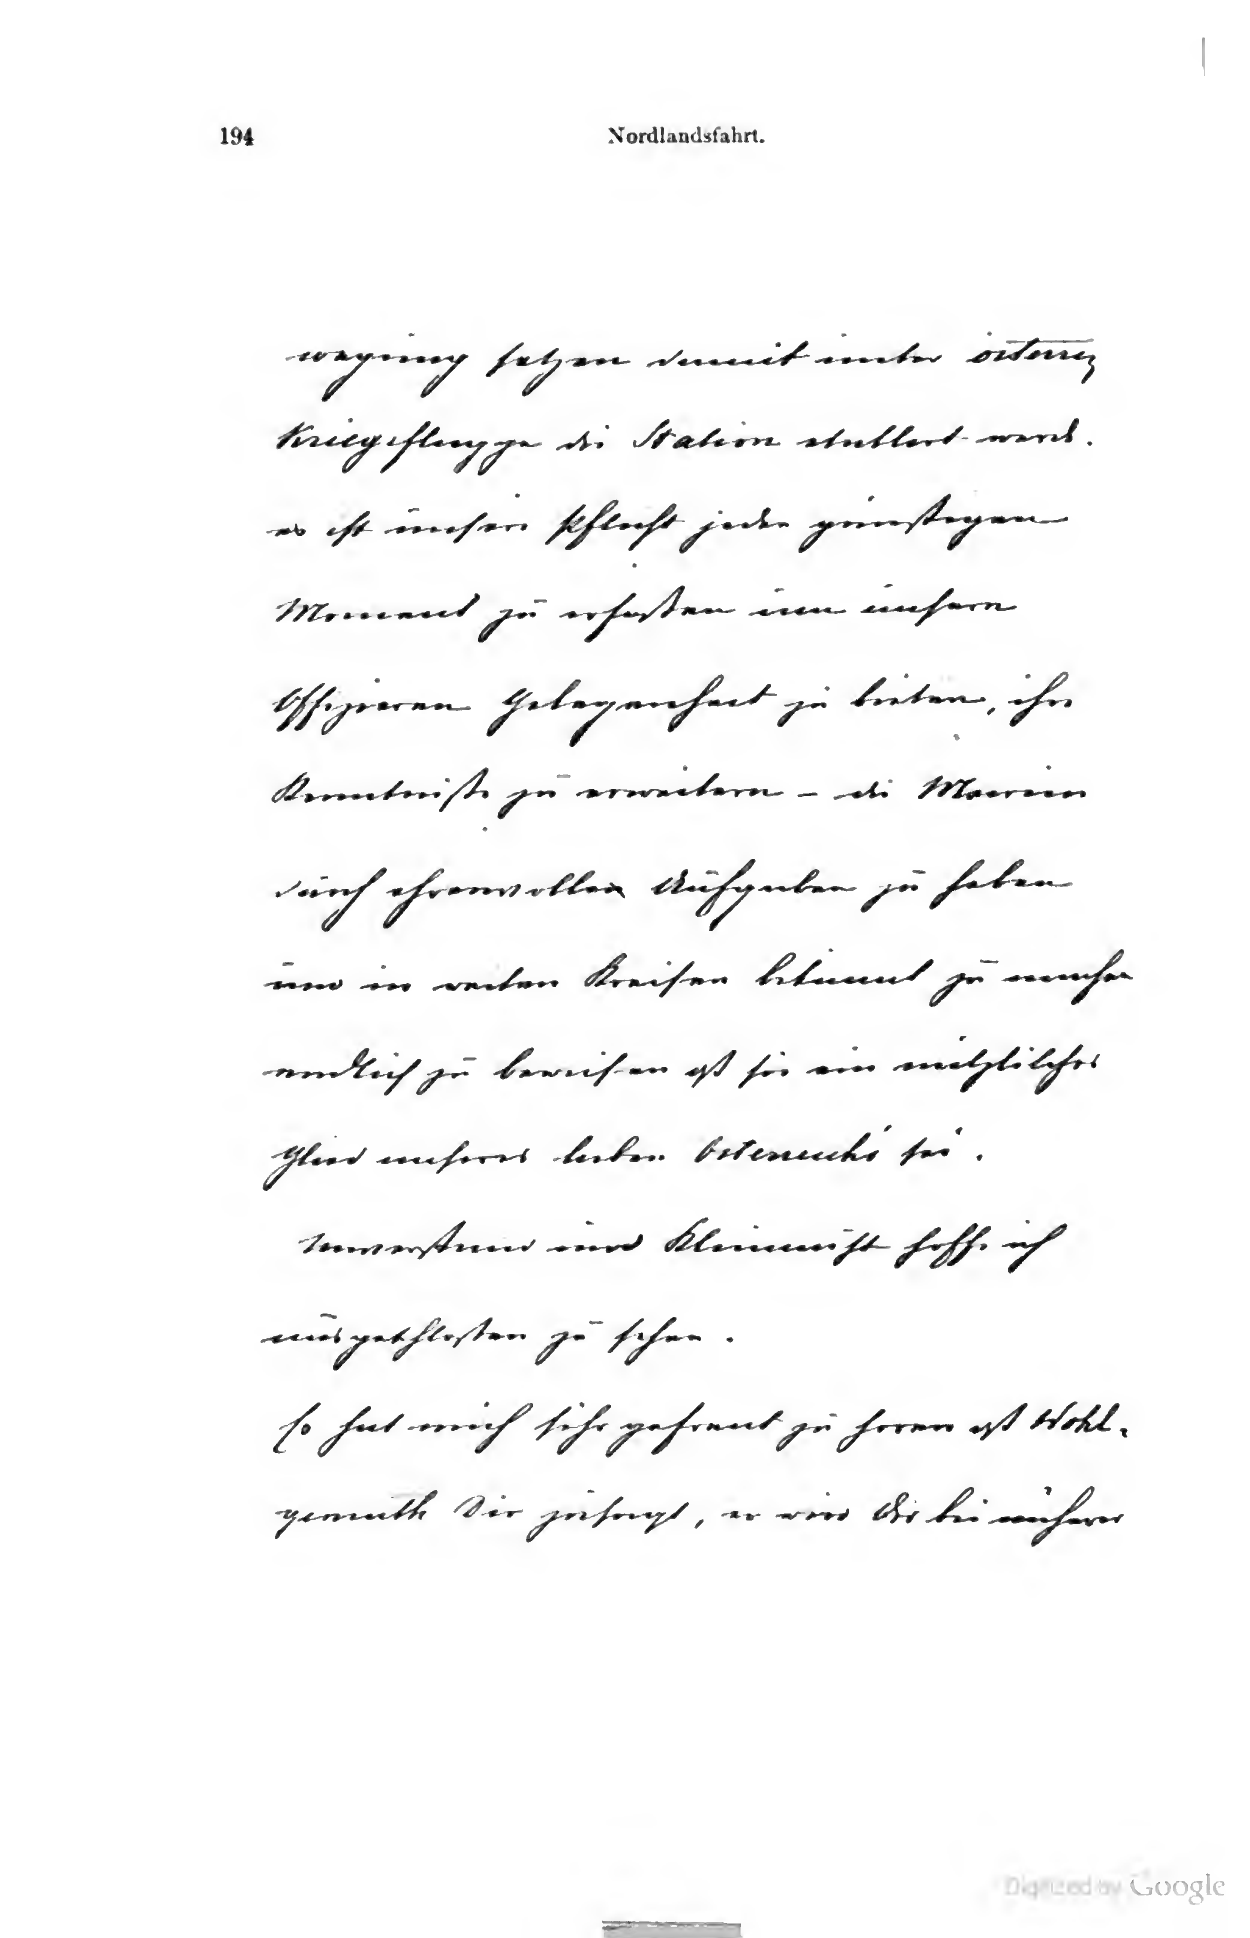 194 Nordlandsfahrt.
wegung setzen damit unter österr.
Kriegsflagge die Station etablirt werd.
es ist unsere Pflicht jeden günstigen
Moment zu erfaßen um unsern
Offizieren Gelegenheit zu bieten, ihre
Kenntniße zu erweitern – die Marine
durch ehrenvolle Aufgaben zu heben
und in weiten Kreisen bekannt zu machen
endlich zu beweisen sie ein nützliches
Glied unseres lieben Österreichs sei.
Unverstand und Kleinmuth hoffe ich
ausgeschloßen zu sehen.
hat mich sehr gefreut zu hören Wohl-
gemuth Dir zusagt, er wird Dir bei näherer
Digitized by Google